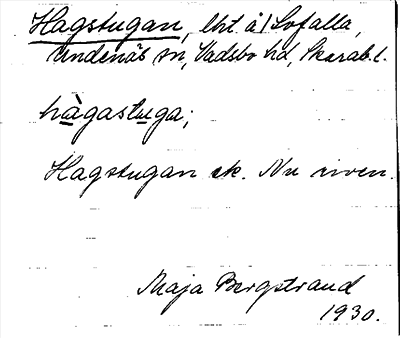 Hagstugan, lht å Sofalla,
Undenäs sn, Vadsbo hd, Skarab. l.
hàgastuga;
Hagstugan ek. Nu riven.
Maja Bergstrand
1930.